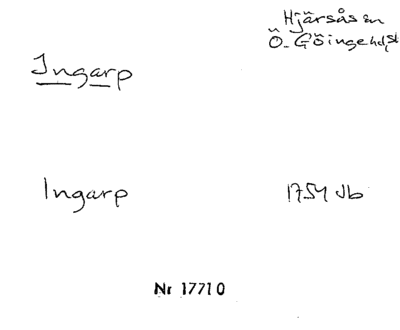 Hjärsås sn
Ö. Göinge hd, sk
Ingarp
Ingarp 1754 Jb
Nr 17710